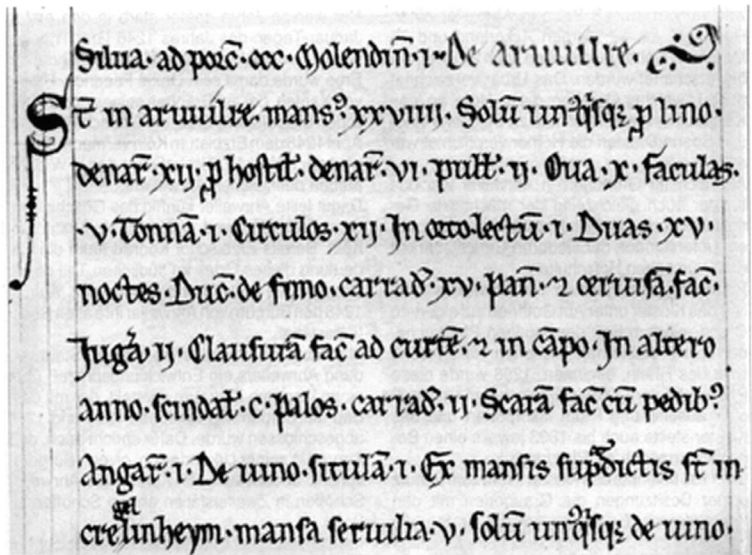 Silua · ad porc̄ · ccc · Molendin̄ · i · De aruuilre ·
St̄ in aruuilre · mansꝰ xxviiii · Solū unꝰqͥsqꝫ ꝓ lino ·
denar̄ · xii · ꝓ hostit̄ · denar̄ · vi · putt̄ · ii · Oua · x · faculas ·
· v · Tonnā · i · Circulos · xii · In octo lectū · i · Duas · xv ·
noctes · Duc̄ · de fimo · carrad̄ · xv · pan̄ · ⁊ ceruisā · fac̄ ·
Iuḡa ii · Clausurā fac̄ ad curtē · ⁊ in cāpo · In altero
anno · scindat̄ · c · palos · carrad̄ · ii · Scarā fac̄ cū pedibꝰ
Angar̄ · i · De uino · situlā · i · Ex mansis sup̄dictis st̄ in
gel
crelinheym · mansa seruilia · v · solū unꝰqͥsqꝫ de uino ·